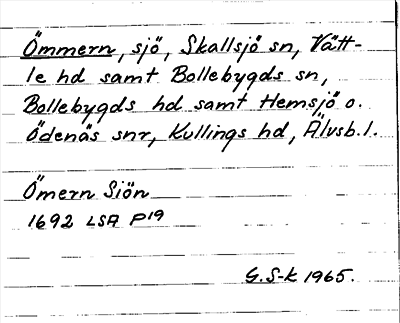 Ömmern, sjö, Skallsjö sn, Vätt-
le hd samt Bollebygds sn,
Bollebygds hd samt Hemsjö o.
Ödenäs snr, Kullings hd, Älvsb.l.
Ömern Siön
1692 LSA P19
G.S-k 1965.